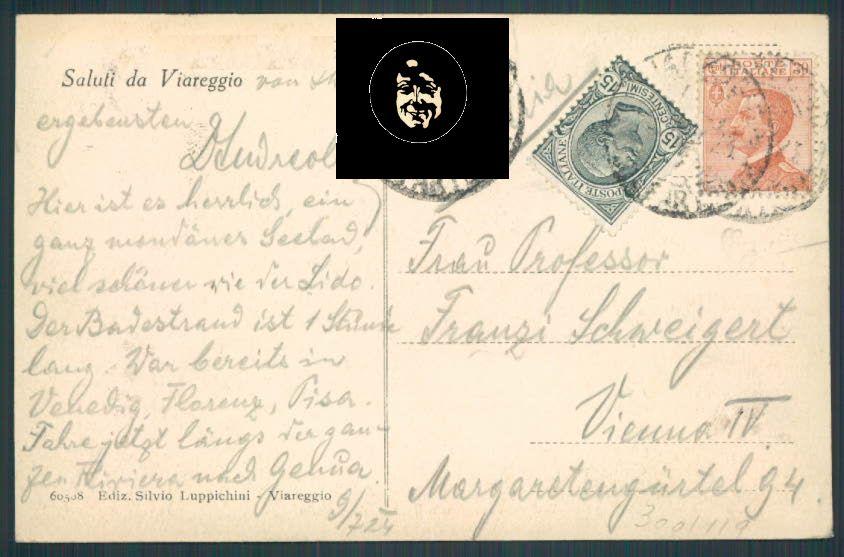 Saluti da Viareggio von
ergebensten
Hier ist es herrlich, ein
ganz mondänes Seebad,
viel schöner wie der Lido.
Der Badestrand ist 1 Stunde
lang. War bereits in
Venedig, Florenz, Pisa.
Fahre jetzt längs der gan-
zen Riviera nach Genua.
60508 Ediz. Silvio Luppichini - Viareggio
9/7 25
POSTE ITALIANE
15 CENTESIMI 15
POSTE
ITALIANE
Frau Professor
Franzi Schweigert
Vienna IV
Margaretengürtel 94.